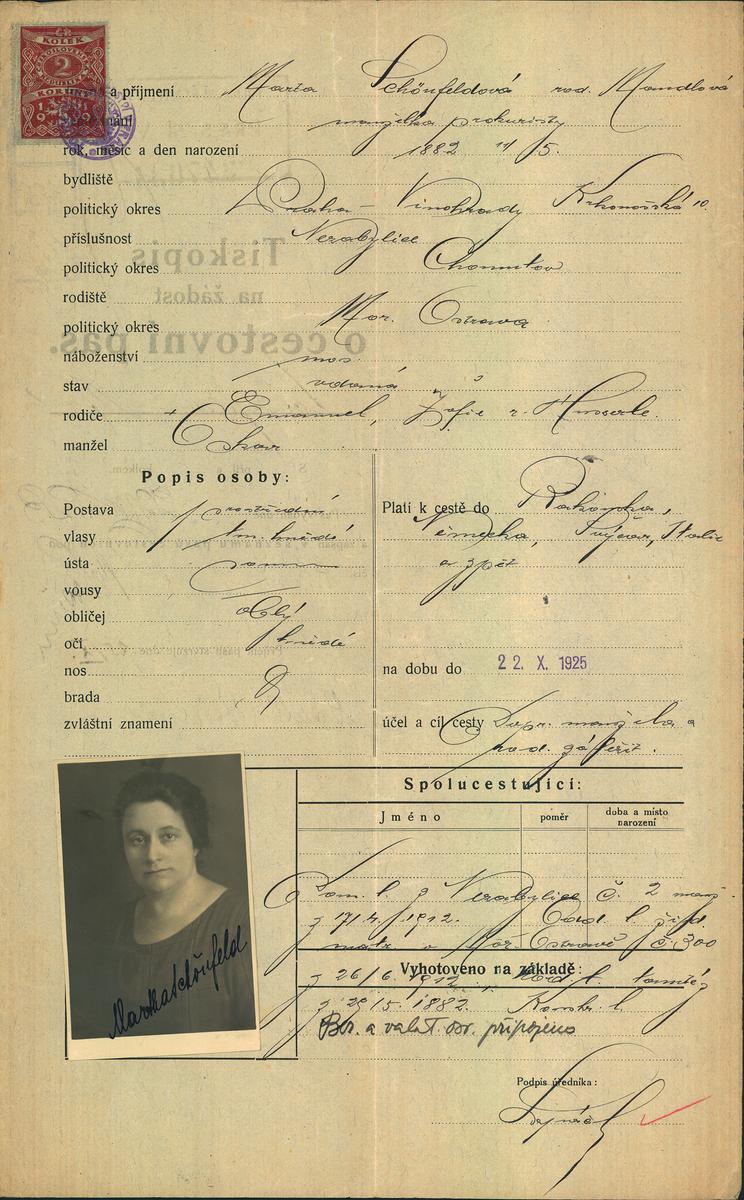 ČR KOLEK
ČESKOSLOVENSKÁ REPUBLIKA
2
KORUNY
1919
a příjmení Marta Schönfeldová roz. Mandlová
manželka prokuristy
rok, měsíc a den narození 1882 5.
bydliště
politický okres Praha - Vinohrady Krkonošská 10.
příslušnost Nezabylice
politický okres Chomutov
rodiště
politický okres Mor. Ostrava
náboženství mos.
stav vdaná
rodiče Emanuel, Žofie r. Husserle.
manžel Oskar
Tiskopis
na žádost
o cestovní pas.
Popis osoby:
Postava prostřední
vlasy tm. hnědé
ústa
vousy
obličej oblý
oči hnědé
nos
brada
zvláštní znamení
Platí k cestě do Rakouska,
Německa, Švýcar, Italie
a zpět
na dobu do 22. X. 1925
účel a cíl cesty Dopr. manžela a
Spolucestující:
Jméno poměr doba a místo narození
Dom. l. z Nezabylice č. 2
z 17/4. 1912. Odd. l. žid.
matr. v Mor. Ostravě č. 300
Vyhotoveno na základě:
z 26/6. 1912., Rod. l. tamtéž
z 29/5. 1882. Konskr. l.
Ber. a valut. br. připojeno
Podpis úředníka:
Martha Schönfeld